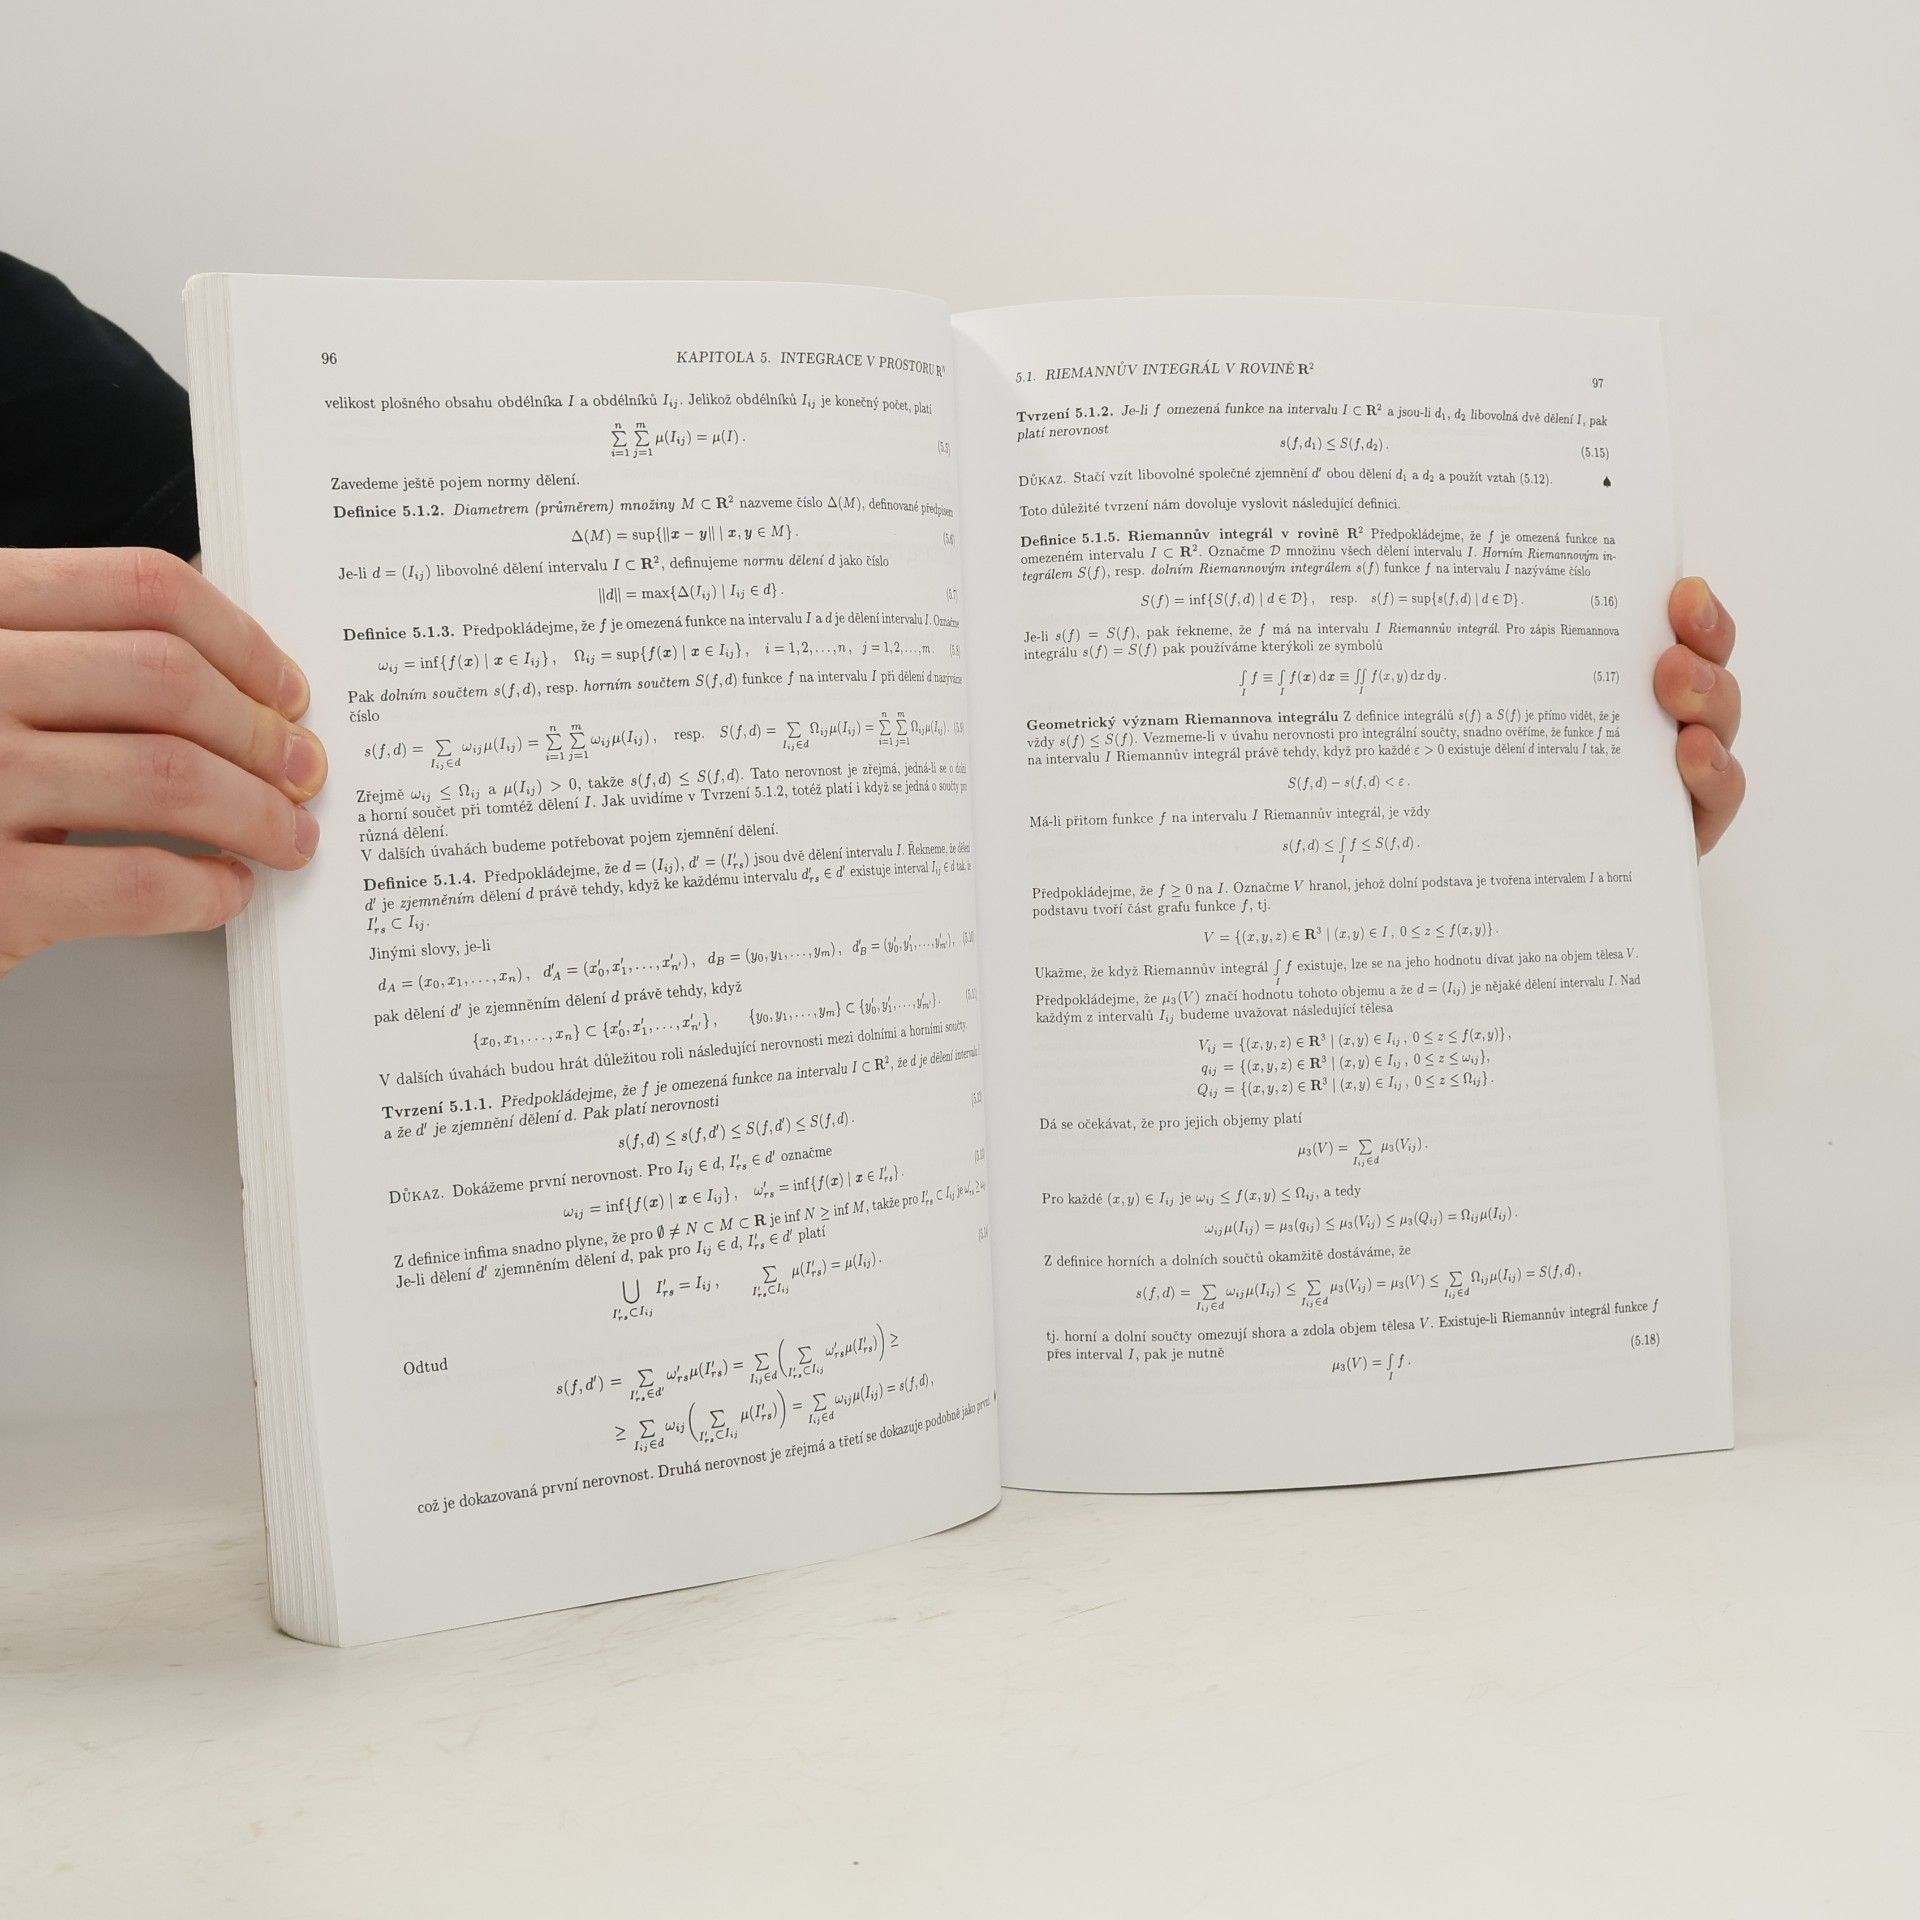 96 KAPITOLA 5. INTEGRACE V PROSTORU Rᴺ
velikost plošného obsahu obdélníka I a obdélníků I_{ij}. Jelikož obdélníků I_{ij} je konečný počet, platí
∑_{i=1}^{n} ∑_{j=1}^{m} μ(I_{ij}) = μ(I). (5.5)
Zavedeme ještě pojem normy dělení.
Definice 5.1.2. Diametrem (průměrem) množiny M ⊂ R² nazveme číslo Δ(M), definované předpisem
Δ(M) = sup{||x − y|| | x, y ∈ M}. (5.6)
Je-li d = (I_{ij}) libovolné dělení intervalu I ⊂ R², definujeme normu dělení d jako číslo
||d|| = max{Δ(I_{ij}) | I_{ij} ∈ d}. (5.7)
Definice 5.1.3. Předpokládejme, že f je omezená funkce na intervalu I a d je dělení intervalu I. Označme
ω_{ij} = inf{f(x) | x ∈ I_{ij}}, Ω_{ij} = sup{f(x) | x ∈ I_{ij}}, i = 1,2,...,n, j = 1,2,...,m. (5.8)
Pak dolním součtem s(f,d), resp. horním součtem S(f,d) funkce f na intervalu I při dělení d nazýváme
číslo
s(f,d) = ∑_{I_{ij}∈d} ω_{ij}μ(I_{ij}) = ∑_{i=1}^{n} ∑_{j=1}^{m} ω_{ij}μ(I_{ij}), resp. S(f,d) = ∑_{I_{ij}∈d} Ω_{ij}μ(I_{ij}) = ∑_{i=1}^{n} ∑_{j=1}^{m} Ω_{ij}μ(I_{ij}). (5.9)
Zřejmě ω_{ij} ≤ Ω_{ij} a μ(I_{ij}) > 0, takže s(f,d) ≤ S(f,d). Tato nerovnost je zřejmá, jedná-li se o dolní
a horní součet při tomtéž dělení I. Jak uvidíme v Tvrzení 5.1.2, totéž platí i když se jedná o součty pro
různá dělení.
V dalších úvahách budeme potřebovat pojem zjemnění dělení.
Definice 5.1.4. Předpokládejme, že d = (I_{ij}), d′ = (I′_{rs}) jsou dvě dělení intervalu I. Řekneme, že dělení
d′ je zjemněním dělení d právě tehdy, když ke každému intervalu d′_{rs} ∈ d′ existuje interval I_{ij} ∈ d tak, že
I′_{rs} ⊂ I_{ij}.
Jinými slovy, je-li
d_A = (x₀,x₁,...,xₙ), d′_A = (x′₀,x′₁,...,x′_{n′}), d_B = (y₀,y₁,...,yₘ), d′_B = (y′₀,y′₁,...,y′_{m′}), (5.10)
pak dělení d′ je zjemněním dělení d právě tehdy, když
{x₀,x₁,...,xₙ} ⊂ {x′₀,x′₁,...,x′_{n′}}, {y₀,y₁,...,yₘ} ⊂ {y′₀,y′₁,...,y′_{m′}}. (5.11)
V dalších úvahách budou hrát důležitou roli následující nerovnosti mezi dolními a horními součty.
Tvrzení 5.1.1. Předpokládejme, že f je omezená funkce na intervalu I ⊂ R², že d je dělení intervalu I
a že d′ je zjemnění dělení d. Pak platí nerovnosti
s(f,d) ≤ s(f,d′) ≤ S(f,d′) ≤ S(f,d). (5.12)
DŮKAZ. Dokážeme první nerovnost. Pro I_{ij} ∈ d, I′_{rs} ∈ d′ označme
ω_{ij} = inf{f(x) | x ∈ I_{ij}}, ω′_{rs} = inf{f(x) | x ∈ I′_{rs}}. (5.13)
Z definice infima snadno plyne, že pro ∅ ≠ N ⊂ M ⊂ R je inf N ≥ inf M, takže pro I′_{rs} ⊂ I_{ij} je ω′_{rs} ≥ ω_{ij}
Je-li dělení d′ zjemněním dělení d, pak pro I_{ij} ∈ d, I′_{rs} ∈ d′ platí
⋃_{I′_{rs}⊂I_{ij}} I′_{rs} = I_{ij}, ∑_{I′_{rs}⊂I_{ij}} μ(I′_{rs}) = μ(I_{ij}). (5.14
Odtud
s(f,d′) = ∑_{I′_{rs}∈d′} ω′_{rs}μ(I′_{rs}) = ∑_{I_{ij}∈d} (∑_{I′_{rs}⊂I_{ij}} ω′_{rs}μ(I′_{rs})) ≥
≥ ∑_{I_{ij}∈d} ω_{ij} (∑_{I′_{rs}⊂I_{ij}} μ(I′_{rs})) = ∑_{I_{ij}∈d} ω_{ij}μ(I_{ij}) = s(f,d),
což je dokazovaná první nerovnost. Druhá nerovnost je zřejmá a třetí se dokazuje podobně jako první.
5.1. RIEMANNŮV INTEGRÁL V ROVINĚ R² 97
Tvrzení 5.1.2. Je-li f omezená funkce na intervalu I ⊂ R² a jsou-li d₁, d₂ libovolná dvě dělení I, pak
platí nerovnost
s(f,d₁) ≤ S(f,d₂). (5.15)
DŮKAZ. Stačí vzít libovolné společné zjemnění d′ obou dělení d₁ a d₂ a použít vztah (5.12). ♠
Toto důležité tvrzení nám dovoluje vyslovit následující definici.
Definice 5.1.5. Riemannův integrál v rovině R² Předpokládejme, že f je omezená funkce na
omezeném intervalu I ⊂ R². Označme 𝒟 množinu všech dělení intervalu I. Horním Riemannovým in-
tegrálem S(f), resp. dolním Riemannovým integrálem s(f) funkce f na intervalu I nazýváme číslo
S(f) = inf{S(f,d) | d ∈ 𝒟}, resp. s(f) = sup{s(f,d) | d ∈ 𝒟}. (5.16)
Je-li s(f) = S(f), pak řekneme, že f má na intervalu I Riemannův integrál. Pro zápis Riemannova
integrálu s(f) = S(f) pak používáme kterýkoli ze symbolů
∫_I f ≡ ∫_I f(x) dx ≡ ∬_I f(x,y) dx dy. (5.17)
Geometrický význam Riemannova integrálu Z definice integrálů s(f) a S(f) je přímo vidět, že je
vždy s(f) ≤ S(f). Vezmeme-li v úvahu nerovnosti pro integrální součty, snadno ověříme, že funkce f má
na intervalu I Riemannův integrál právě tehdy, když pro každé ε > 0 existuje dělení d intervalu I tak, že
S(f,d) − s(f,d) < ε.
Má-li přitom funkce f na intervalu I Riemannův integrál, je vždy
s(f,d) ≤ ∫_I f ≤ S(f,d).
Předpokládejme, že f ≥ 0 na I. Označme V hranol, jehož dolní podstava je tvořena intervalem I a horní
podstavu tvoří část grafu funkce f, tj.
V = {(x,y,z) ∈ R³ | (x,y) ∈ I, 0 ≤ z ≤ f(x,y)}.
Ukažme, že když Riemannův integrál ∫_I f existuje, lze se na jeho hodnotu dívat jako na objem tělesa V.
Předpokládejme, že μ₃(V) značí hodnotu tohoto objemu a že d = (I_{ij}) je nějaké dělení intervalu I. Nad
každým z intervalů I_{ij} budeme uvažovat následující tělesa
V_{ij} = {(x,y,z) ∈ R³ | (x,y) ∈ I_{ij}, 0 ≤ z ≤ f(x,y)},
q_{ij} = {(x,y,z) ∈ R³ | (x,y) ∈ I_{ij}, 0 ≤ z ≤ ω_{ij}},
Q_{ij} = {(x,y,z) ∈ R³ | (x,y) ∈ I_{ij}, 0 ≤ z ≤ Ω_{ij}}.
Dá se očekávat, že pro jejich objemy platí
μ₃(V) = ∑_{I_{ij}∈d} μ₃(V_{ij}).
Pro každé (x,y) ∈ I_{ij} je ω_{ij} ≤ f(x,y) ≤ Ω_{ij}, a tedy
ω_{ij}μ(I_{ij}) = μ₃(q_{ij}) ≤ μ₃(V_{ij}) ≤ μ₃(Q_{ij}) = Ω_{ij}μ(I_{ij}).
Z definice horních a dolních součtů okamžitě dostáváme, že
s(f,d) = ∑_{I_{ij}∈d} ω_{ij}μ(I_{ij}) ≤ ∑_{I_{ij}∈d} μ₃(V_{ij}) = μ₃(V) ≤ ∑_{I_{ij}∈d} Ω_{ij}μ(I_{ij}) = S(f,d),
tj. horní a dolní součty omezují shora a zdola objem tělesa V. Existuje-li Riemannův integrál funkce f
přes interval I, pak je nutně
μ₃(V) = ∫_I f. (5.18)